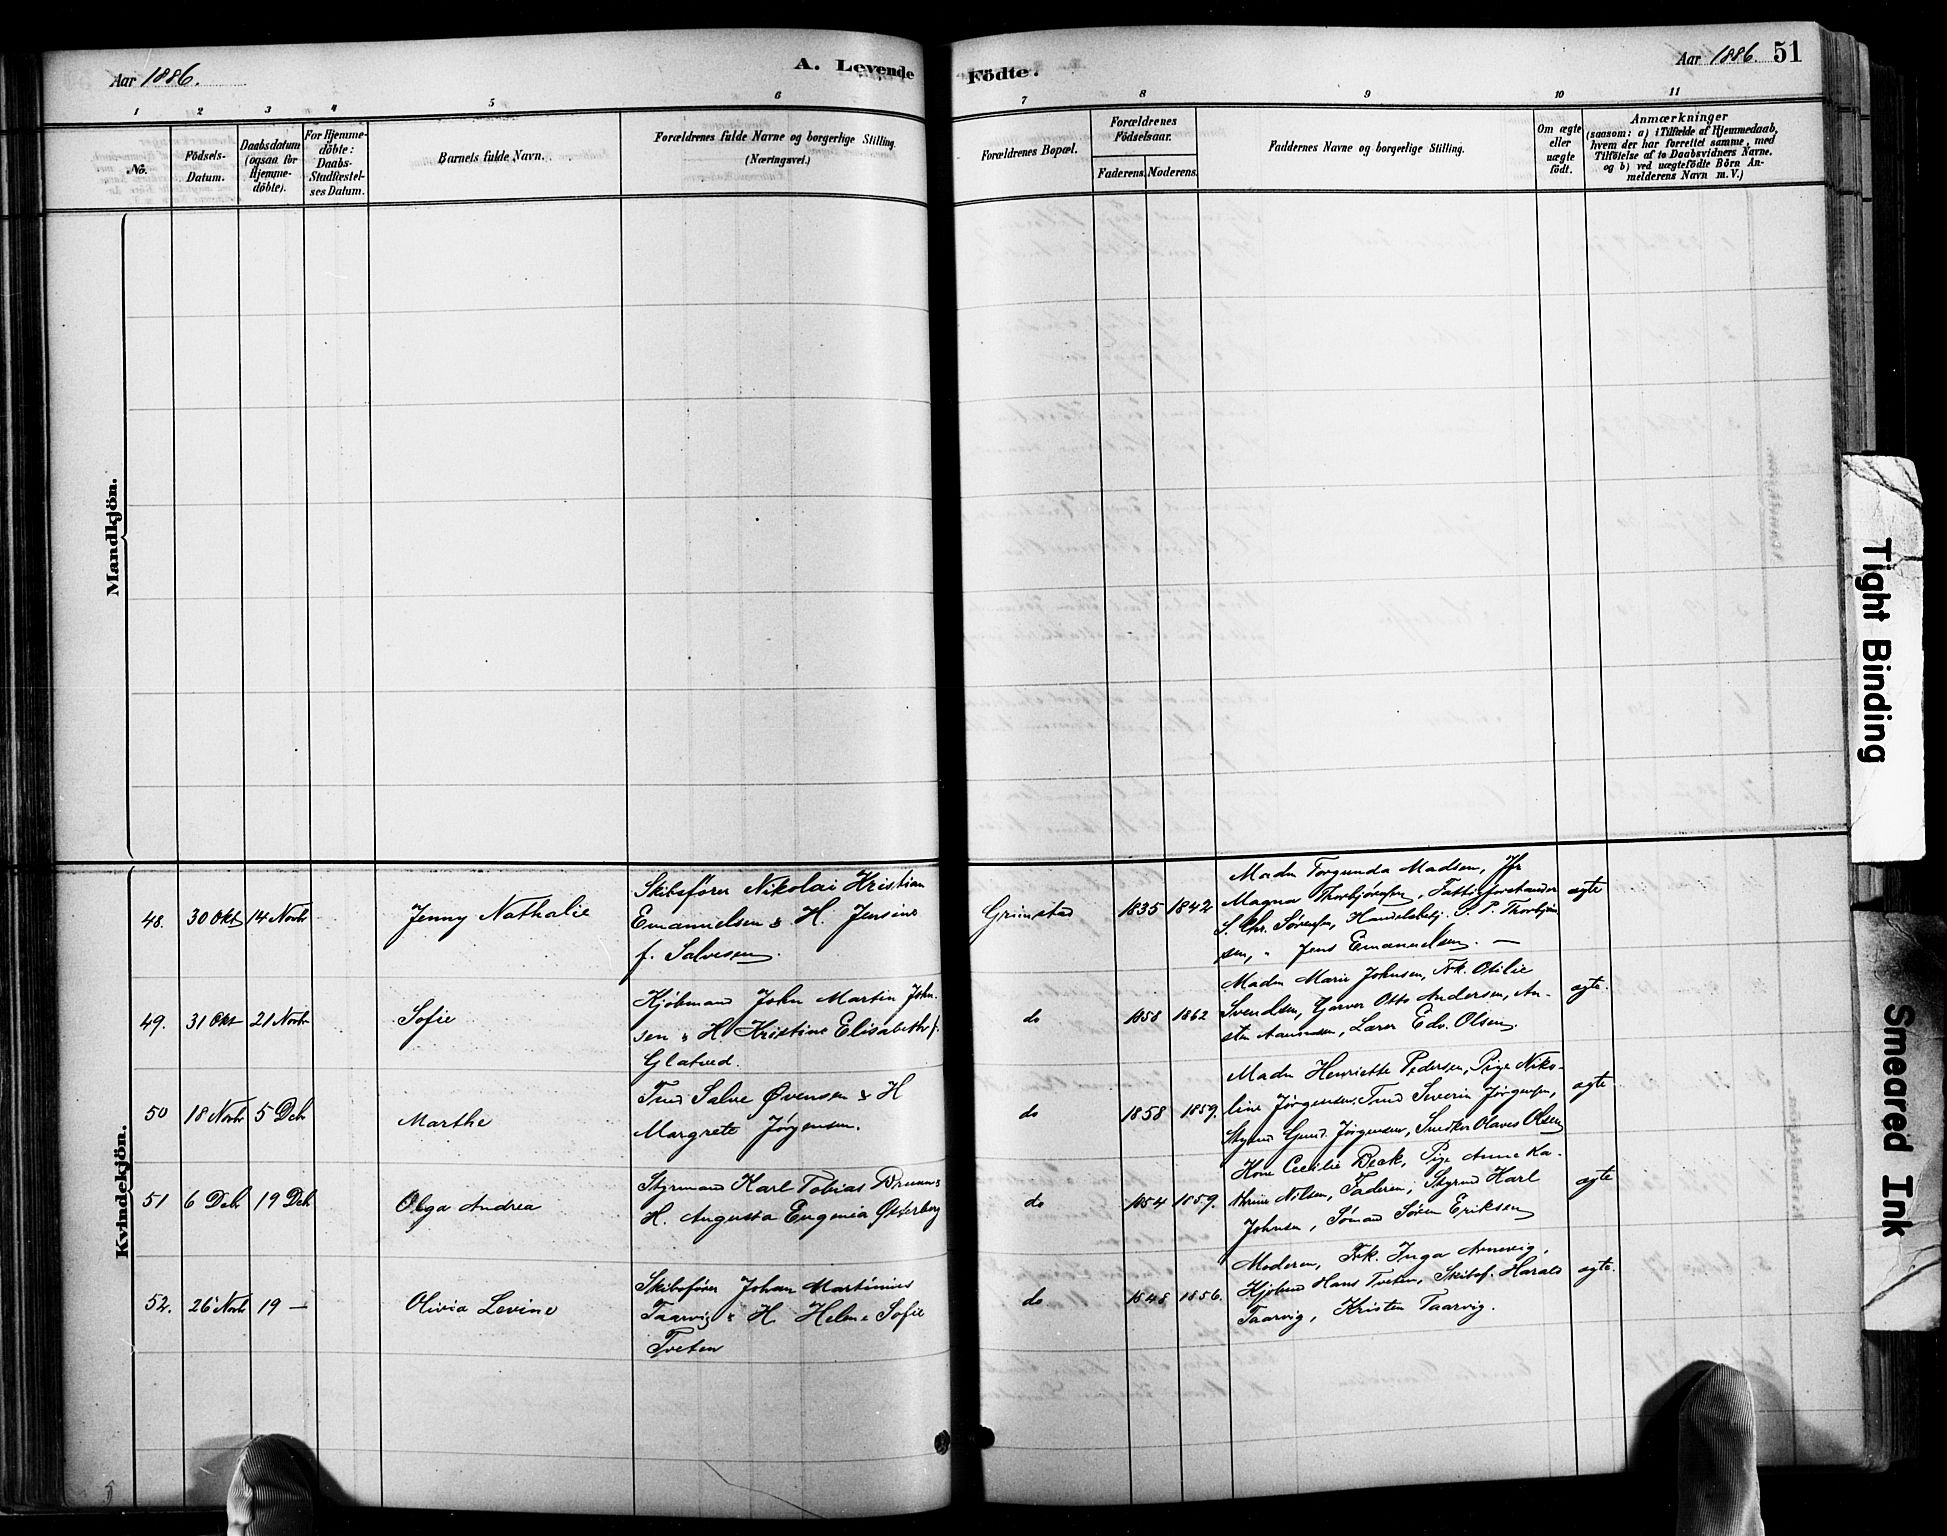 Aar 1886.
A. Levende
Födte.
Aar 1886. 51
1 2 3 4 5 6 7 8 9 10 11
No.
Födsels-
Datum.
Daabsdatum
(ogsaa for
Hjemme-
döbte).
For Hjemme-
döbte:
Daabs-
Stadfæstel-
ses Datum.
Barnets fulde Navn.
Forældrenes fulde Navne og borgerlige Stilling.
(Næringsvei.)
Forældrenes Bopæl.
Forældrenes
Födselsaar.
Faderens. Moderens.
Faddernes Navne og borgerlige Stilling.
Om ægte
eller
uægte
födt.
Anmærkninger
(saasom: a) i Tilfælde af Hjemmedaab,
hvem der har forrettet samme, med
Tilföielse af to Daabsvidners Navne.
og b) ved uægtefödte Börn An-
melderens Navn m. V.)
Mandkjön.
Kvindekjön.
48. 30 Okt 14 Novb
Jenny Nathalie
Skibsfører Nikolai Kristian
Emanuelsen & H. Jensine
f. Salvesen.
Grimstad
1835 1842
Madm Torgunda Madsen, Jfr
Magna Thorbjørnsen, Fattigforstander
S. Chr. Sørensen, Handelsbetj. S. P. Thorbjørn
sen, " Jens Emanuelsen. —
ægte
49. 31 Okt 21 Novb
Sofie
Kjøbmand John Martin John-
sen & H. Kristine Elisabeth f.
Glatved.
do
1858 1862
Madm Marie Johnsen, Frk. Otilie
Svendsen, Garver Otto Andersen, An-
sten Aanonsen, Lærer Edv. Olsen.
ægte.
50 18 Novb 5 Deb
Marthe
Tmd Salve Øvensen & H
Margrete Jørgensen.
do
1858 1859.
Madm Henriette Pedersen, Pige Niko-
line Jørgensen, Tmd Severin Jørgensen,
Styrmd Gund. Jørgensen, Snedker Olaves Olsen
ægte
51 6 Deb 19 Deb
Olga Andrea
Styrmand Karl Tobias Bruun &
H. Augusta Eugenia Østerberg
do
1854 1859.
Kone Cecilie Beck, Pige Anne Ka-
thrine Nilsen, Faderen, Styrmd Karl
Johnsen, Sømand Søren Eriksen
ægte
52. 26 Novb 19 —
Olivia Levine
Skibsfører Johan Martinius
Taarvig & H. Helene Sofie
Tveten
do
1848 1856.
Moderen, Frk. Inga Arnevig,
Kjøbmd Hans Tveten, Skibsf. Harald
Taarvig, Kristen Taarvig.
ægte.
Tight Binding
Smeared Ink